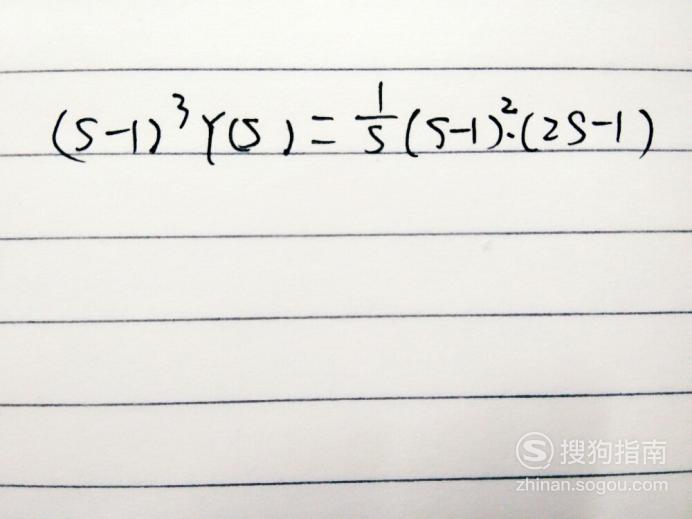 (S-1)³Y(S)=1/S(S-1)²·(2S-1)
S搜狗指南
zhinan.sogou.com